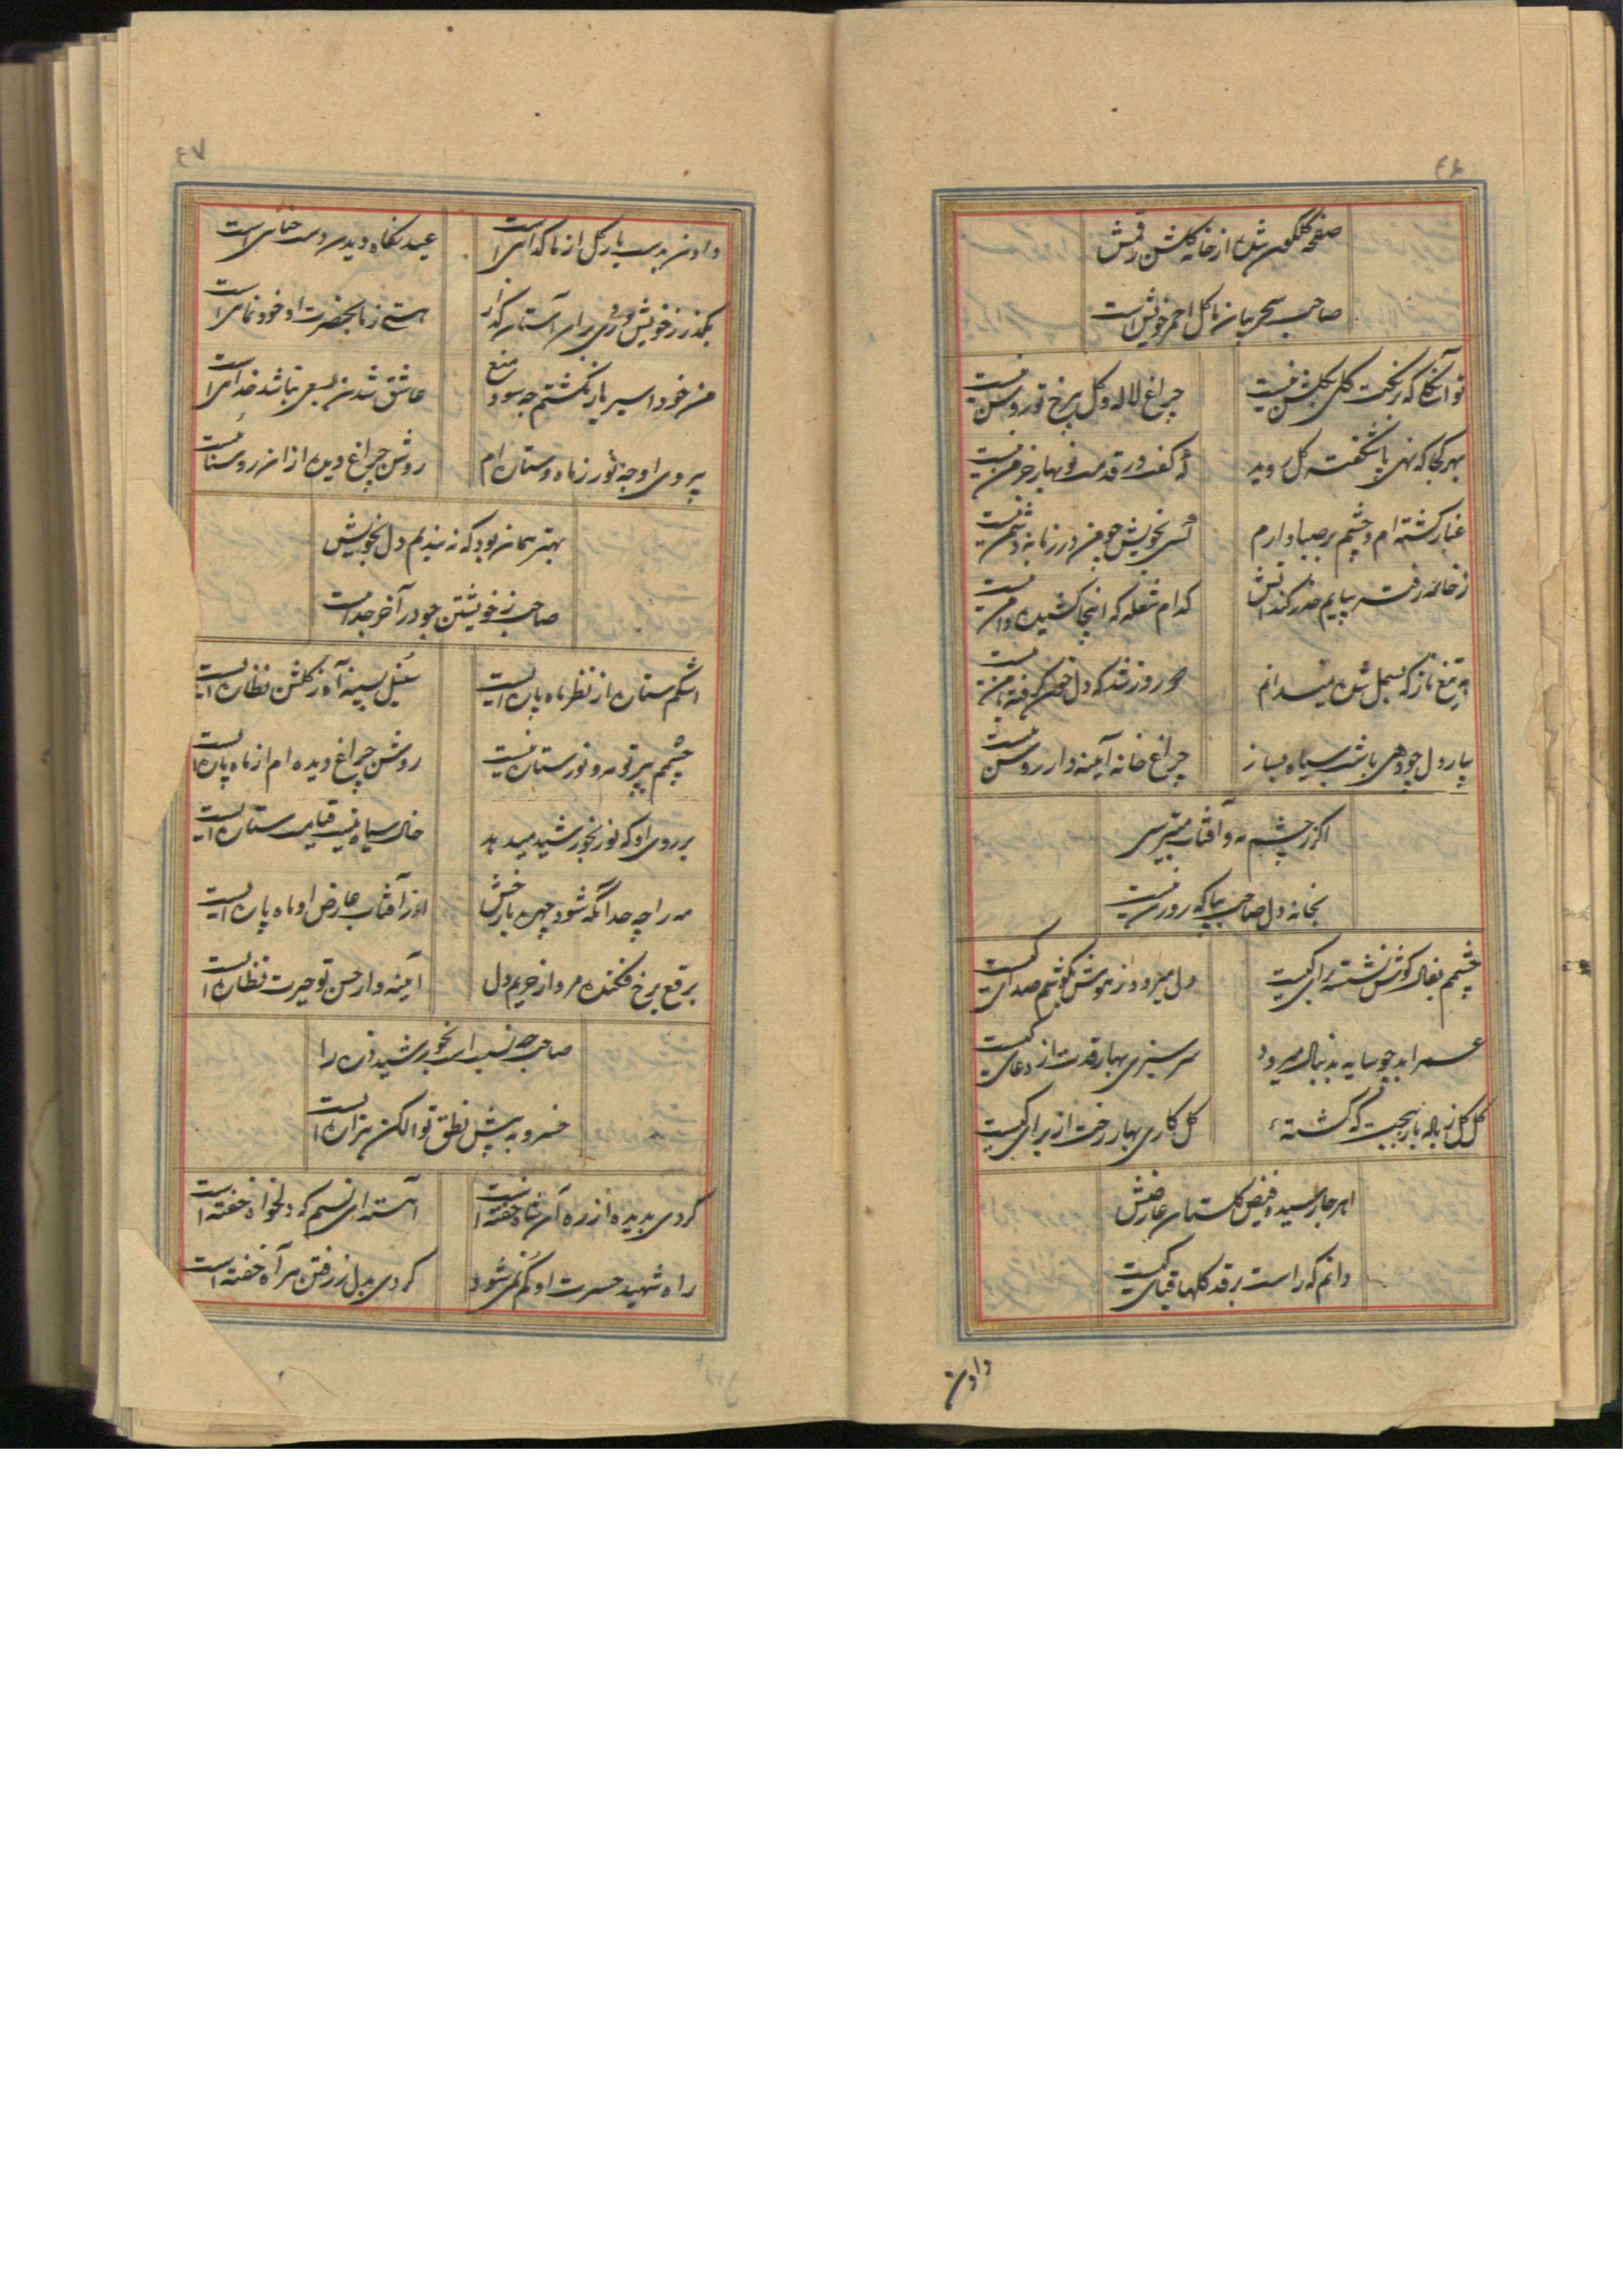 صفحه گلگون شده از خانه گلشن رقمش
صاحب سحر بیان تا گل احمر خویش است
تو آن گلی که برنگت گلی بگلشن نیست
چراغ لاله و گل بی رخ تو روشن نیست
بهر کجا که نهی پا شکفته گل روید
کف در قدمت نوبهار خرمن نیست
غبار گشته ام و چشم بر صبا دارم
کسی بخویش چو من در زمانه دشمن نیست
ز خانه رفت بپایم حذر کند آتش
کدام شعله که اینجا کشیده دامن نیست
تیغ ناز که بسمل شده نمیدانم
روز شد که دل خون گرفته با من نیست
بیا رو دل چو دهی باشب سیاه بساز
چراغ خانه آیینه دار روشن نیست
اگر ز چشم مه و آفتاب میترسی
بخانه دل صاحب بیا که روزن نیست
چشمم بخاک کویش نشسته برای کیست
دل میرود ز هوش بگوشم صدای کیست
عمر ابد چو سایه بدنبال میرود
سرسبزی بهار قدت از دعای کیست
گل گل ز باده باز بجیب که گشته
گل کاری بهار رخت از برای کیست
هر جا رسید فیض گلستان عارضش
دانم که راست بر قد گلها قبای کیست
دادن
دادن بدست یار گل از ما گدائی است
عید نگاه دیدن دست حنائی است
بگذر ز خویش و روی بر آن آستان گذار
هستی ز ما بحضرت او خودنمائی است
من خود اسیر یار نگشتم چه سود منع
عاشق شدن بسعی نباشد خدائی است
بی روی او چه نور ز ماه و ستاره ام
روشن چراغ دیده از آن روشنائی است
بهتر همان بود که نه بندیم دل بخویش
صاحب ز خویشتن چو در آخر جدائی است
اشکم ستاره از نظر ماه پاره ایست
سنبل بسینه آه ز گلشن نظاره ایست
چشمم بپرتو مه و نور ستاره نیست
روشن چراغ دیده ام از ماه پاره ایست
بر روی او که نور بخورشید میدهد
خال سیاه نیست قیامت ستاره ایست
مه را چه حد آنکه شود چهره با رخش
از آفتاب عارض او ماه پاره ایست
برقع برخ فکنده مرو از حریم دل
آیینه وار حسن تو حیرت نظاره ایست
صاحب چه نسبت است بخورشید ذره را
خسرو به پیش نطق تو الکن هزاره ایست
گردی بدیده از ره آن شاه خفته است
آهسته ای نسیم که دلخواه خفته است
راه شهید حسرت او گم نمی شود
گردی بدل ز رفتن هر آه خفته است